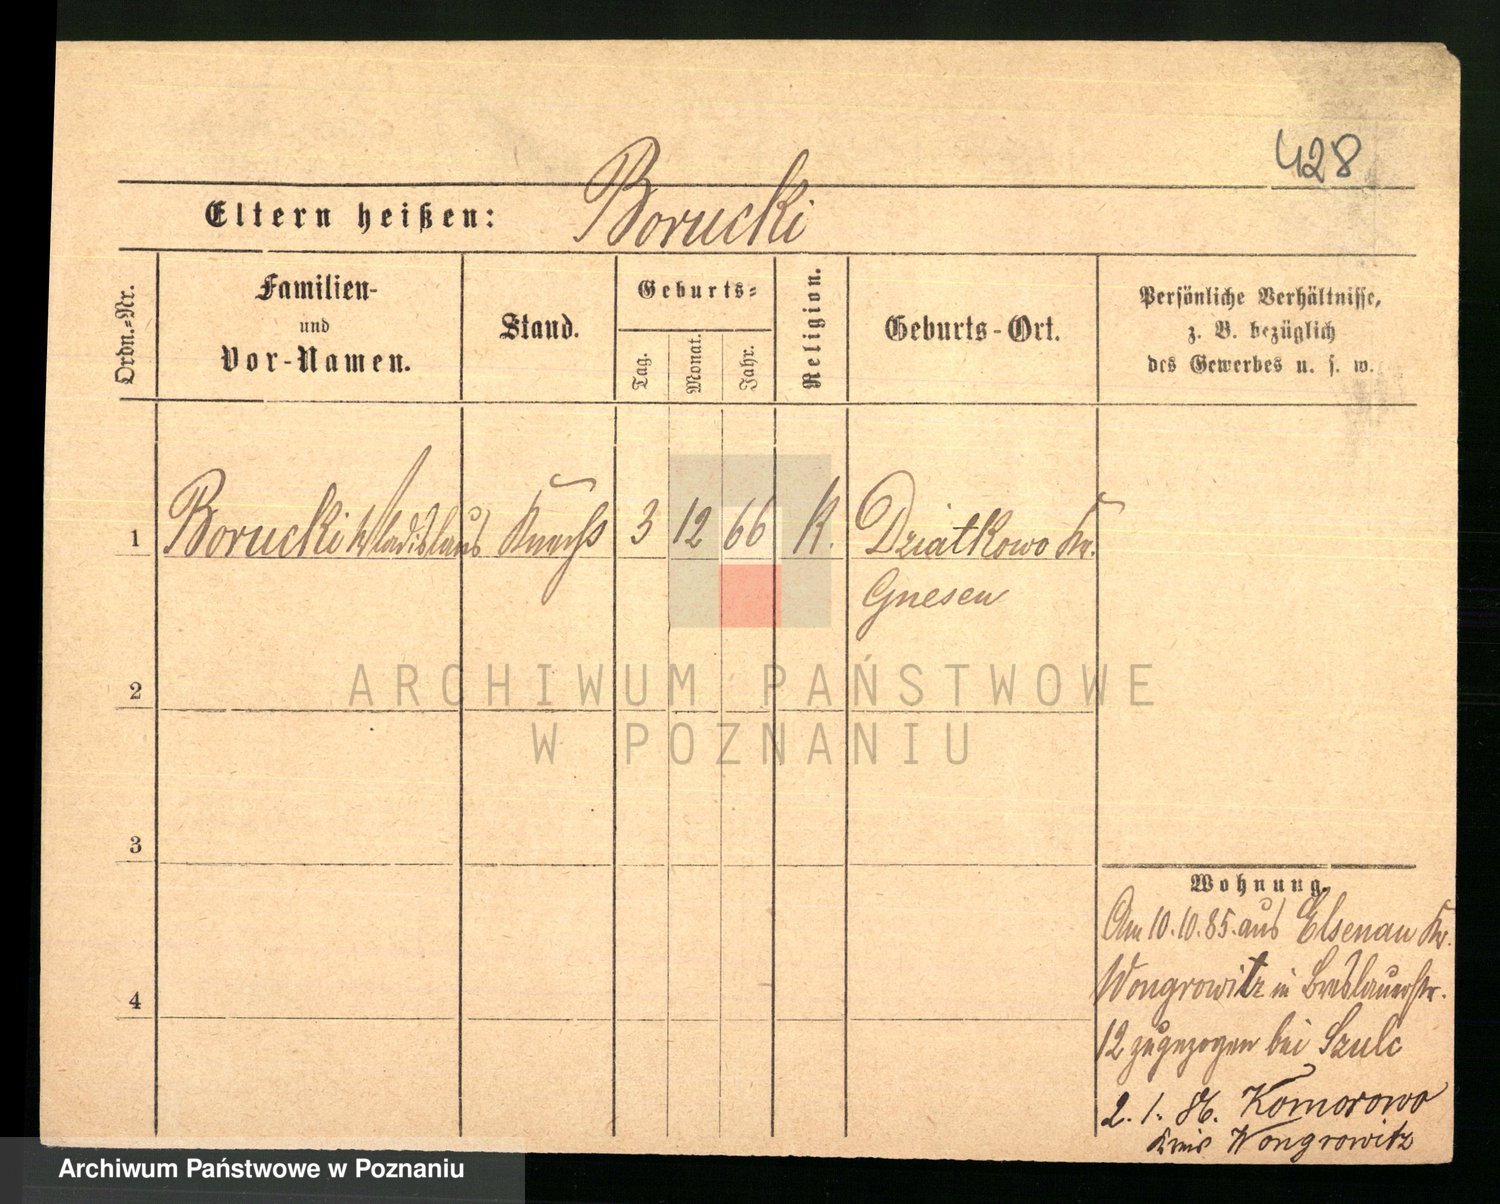 428
Eltern heißen: Borucki
Ordn.=Nr.
Familien-
und
Vor-Namen.
Stand.
Geburts=
Tag.
Monat.
Jahr.
Religion.
Geburts-Ort.
Persönliche Verhältnisse,
z. B. bezüglich
des Gewerbes u. s. w.
1 Borucki Wladislaus Knecht 3 12 66 K. Dziatkowo Kr.
Gnesen
2
3
4
ARCHIWUM PAŃSTWOWE
W POZNANIU
Wohnung.
Am 10.10.85. aus Elsenau Kr.
Wongrowitz in Breslauerstr.
12 zugezogen bei Szulc
2. 1. 86. Komorowo
Kreis Wongrowitz
Archiwum Państwowe w Poznaniu